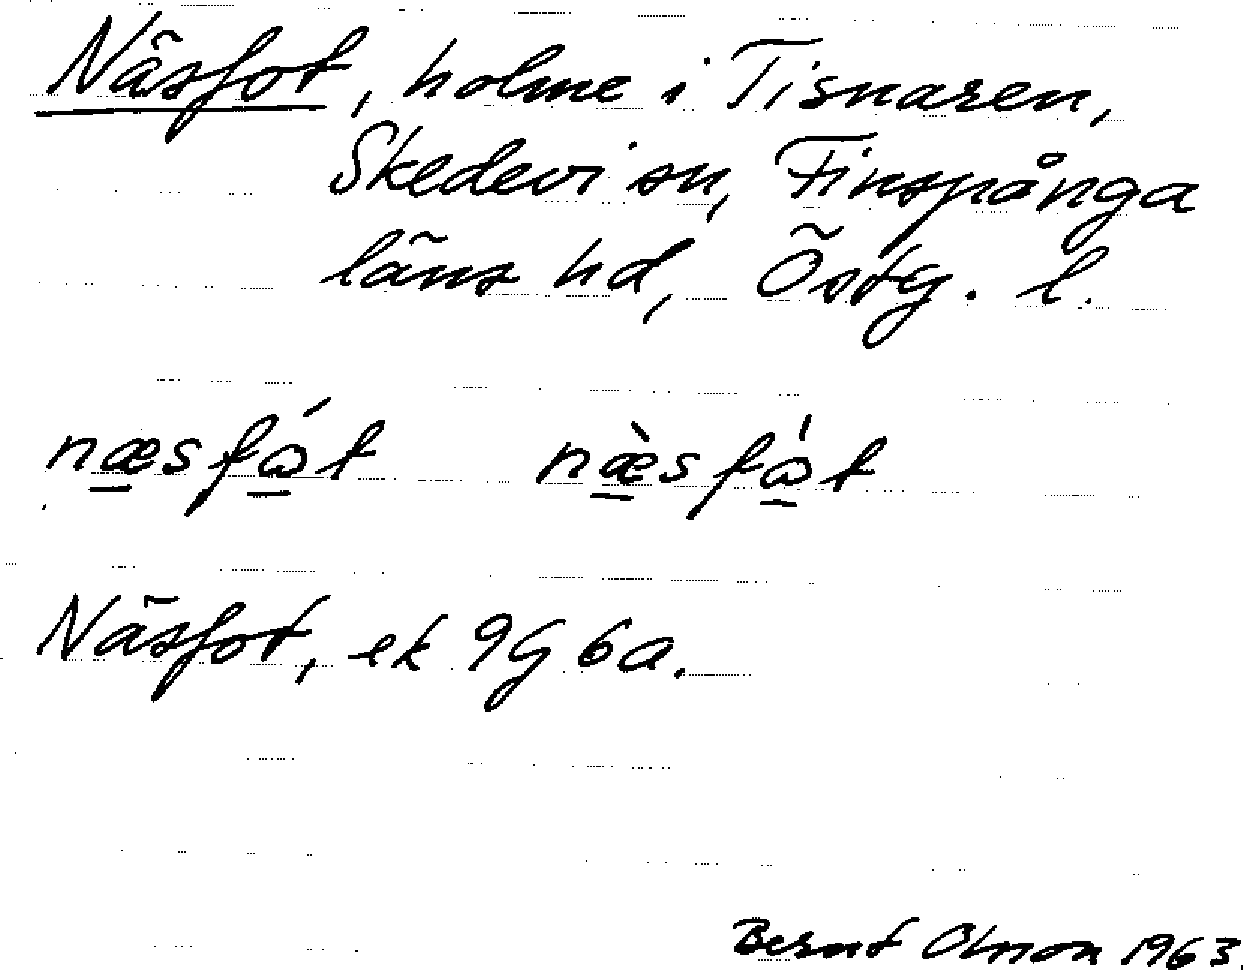 Näsfot, holme i Tisnaren,
Skedevi sn, Finspånga
läns hd, Östg. l.
næsfⱥ́t næ̀sfⱥ́t
Näsfot, ek 9G 6a.
Bernt Olsson 1963.